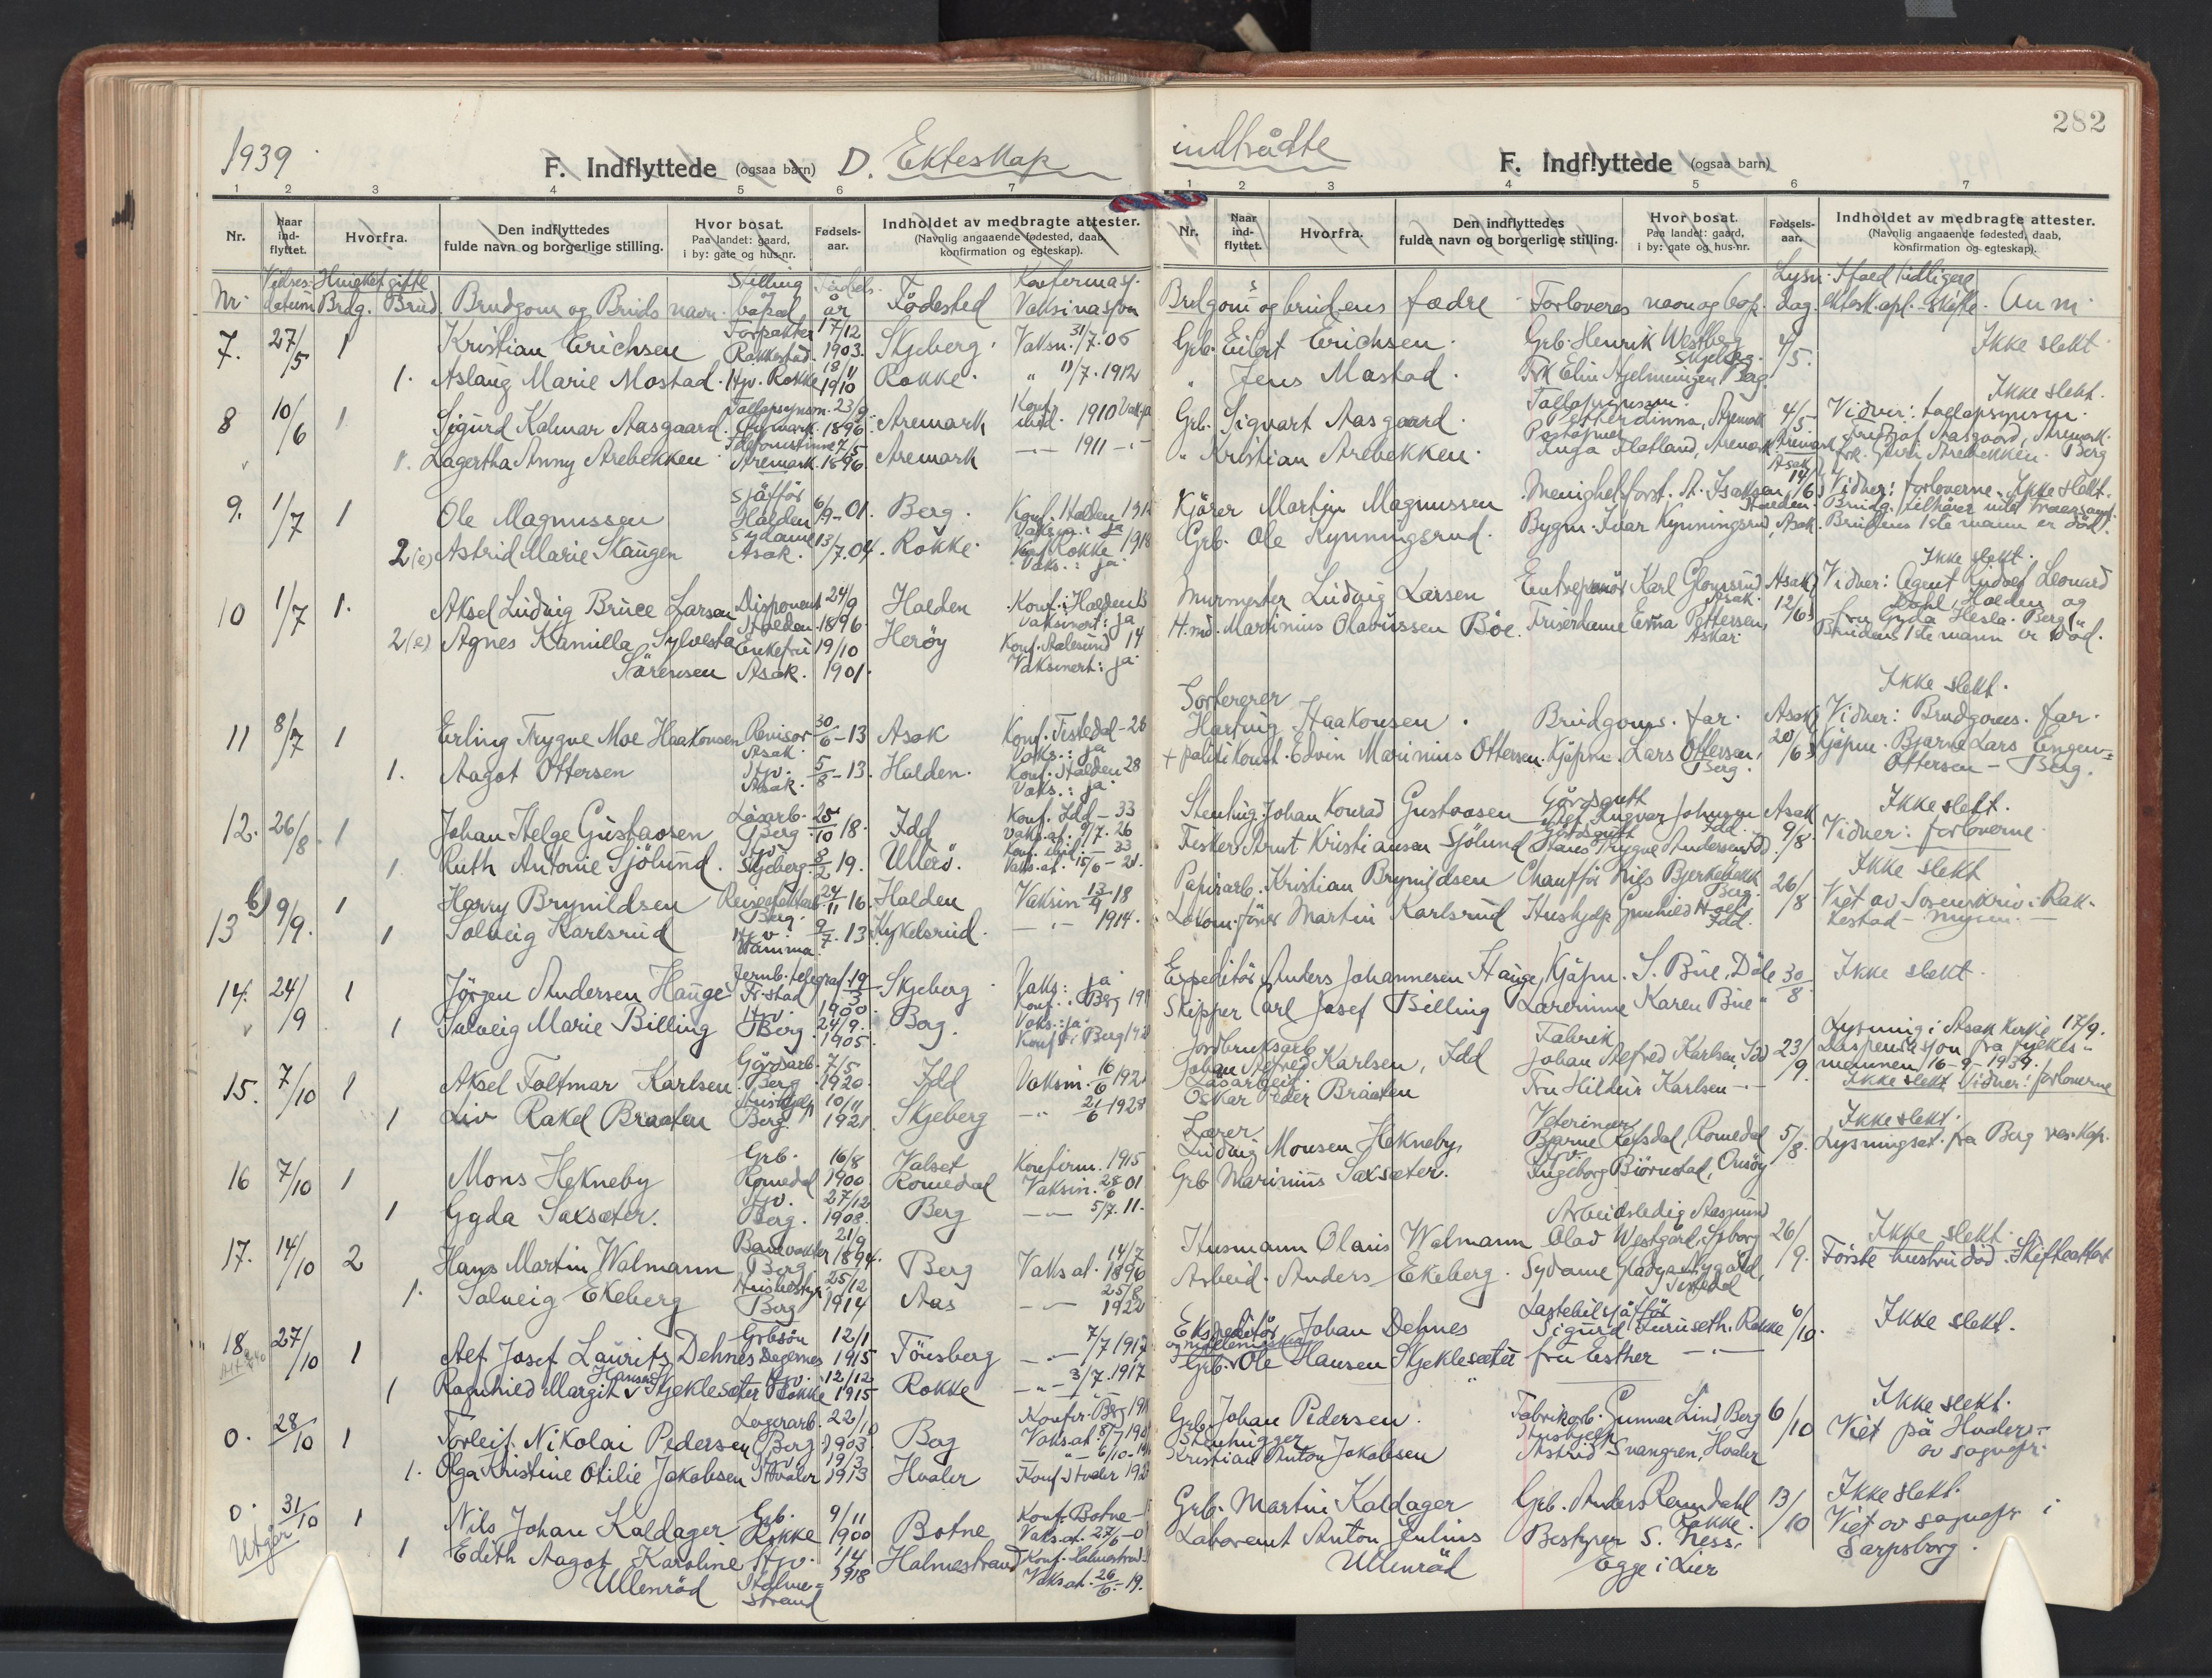 1939
F. Indflyttede (ogsaa barn) D. Ekteskap
1 2 3 4 5 6 7
Nr. Naar ind-flyttet. Hvorfra. Den indflyttedes fulde navn og borgerlige stilling. Hvor bosat. Paa landet: gaard, i by: gate og hus-nr. Fødsels-aar. Indholdet av medbragte attester. (Navnlig angaaende fødested, daab, konfirmation og egteskap).
Nr. Vielses-datum Hvieket gifte Brdg. Brud. Brudgom og Bruds navn Stilling bopæl Fødsels år Fødested Konfirmasj. Vaksinasjon
7. 27/5 1 Kristian Erichsen Forpakter Rakkestad. 17/12 1903. Skjeberg. Vaksn. 31/7. 06
1. Aslaug Marie Mostad. Hjv. Rokke 18/11 1910 Rokke. " 11/7. 1912
8 10/6 1 Sigurd Kalmar Aasgaard. Tollopsynsm. Aremark. 23/9 1896. Aremark Konf. 1910 Vaks. ja
1. Lagertha Anny Arebekken Aremark. 7/5 1896 Aremark 1911
9. 1/7 1 Ole Magnussen Sjåffør Halden 6/9-01. Berg. Konf. Halden Vaksin: ja
2(e) Astrid Marie Skaugen Sydame Asak. 13/7.04. Rokke. Konf. Rokke 1918 Vaks.: ja
10 1/7 1. Aksel Ludvig Bruce Larsen Disponent Halden. 24/9 1896. Halden Konf. i Halden Vaksinert: ja
2(e) Agnes Kamilla Sylvesta Enkefru 19/10 Herøy Konf. Aalesund 14
Sørensen Asak. 1901. Vaksinert: ja
11 8/7 1 Erling Trygve Moe Haakonsen Revisor Asak 30/6-13 Asak Konf. Tistedal-28 Vaks.: ja
1. Aagot Ottersen Hjv. Asak. 5/8-13. Halden. Konf. Halden 28 Vaks.: ja
12. 26/8. 1 Johan Helge Gustavsen Låsarb. Berg 25/10 18. Idd Konf. Idd-33 Vaks.at. 9/7. 26
1 Ruth Antonie Sjölund. Hjv. Skjeberg. 8/2 19. Ullerö. Konf. 33 Vaks.at. 15/6-21.
13 b) 9/9. 1 Harry Brynildsen Berg. 24/11 16. Halden Vaksin 13/9 18
1 Solveig Karlsrud Hjv. Vamma. 9/7. 13 Kykelsrud. 1914.
14. 24/9 1 Jörgen Andersen Hauge Jernb. telegraf. Fr.stad 19/3 1900. Skjeberg Vaks: ja Konf. i Berg
1 Solveig Marie Billing Hjv. Berg 24/9. 1905. Berg. Vaks.: ja Konf. i Berg
15. 7/10 1 Aksel Foltmar Karlsen. Gårdsarb. Berg 7/5 1920. Idd Vaksin. 16/6 192
1 Liv Rakel Braaten Hushjelp Berg. 10/11 1921. Skjeberg 21/6 1928
16 7/10 1 Mons Hekneby Grb. Romedal 16/8 1900 Valset Romedal Konfirm. 1915 Vaksin. 28/6 01
1 Gyda Saxsæter. Hjv. Berg. 27/12 1908. Berg 5/7. 11.
17. 14/10 2 Hans Martin Walmann Banevokter Berg. 21/9 1894. Berg Vaks at. 14/7 1896
1. Solveig Ekeberg Husbestyr. Berg 25/12 1914 Aas 25/8 1922
18 27/10 1 Alf Josef Laurits Dehnes Grbsön Degernes 12/1 1915 Tönsberg 7/7 1917
1 Ragnhild Margit Hansen Skjeklesæter Hjv. Rokke 12/12 1915 Rokke 3/7. 1917
0. 28/10 1 Torleif Nikolai Pedersen Lagerarb. Berg. 22/10 1903 Berg Konfir. Berg Vaks.at. 8/7
1. Olga Kristine Otilie Jakobsen Hjv. Hvaler 19/3 1913 Hvaler 6/10 Konf. Hvaler
0. Utgår 31/10 1 Nils Johan Kaldager Grb. Rokke 9/11 1900 Botne Konf. Botne Vaks.at. 27/6
1 Edith Aagot Karoline Hjv. 1/4 Holmestrand Konf. Holmestrand
Ullenröd Holme-strand 1918 Vaks at. 26/6-19.
282
indtrådte
F. Indflyttede (ogsaa barn)
1 2 3 4 5 6 7
Nr. Naar ind-flyttet. Hvorfra. Den indflyttedes fulde navn og borgerlige stilling. Hvor bosat. Paa landet: gaard, i by: gate og hus-nr. Fødsels-aar. Indholdet av medbragte attester. (Navnlig angaaende fødested, daab, konfirmation og egteskap).
Brudgoms og brudens fædre Forloveres navn og bop. Lysn. dag. Anm.
Grb. Eilert Erichsen. Grb. Henrik Westberg Skjeberg. 4/5. Ikke slekt.
" Jens Mostad. Berg.
Ikke slekt.
Grb. Sigvart Aasgaard. Aremark 4/5 Vidner: tollopsynsm.
" Kristian Arebekken. Aremark Fridtjof Aasgaard, Aremark.
Arebekken. Berg
Kjörer Martin Magnussen Menighetsforst. A. Isaksen Halden. Asak 14/6 Vidner: forloverne. Ikke slekt.
Grb. Ole Kynningsrud. Bygm. Ivar Kynningsrud, Asak. Brudens 1ste mann er död.
Ikke slekt.
Murmester Ludvig Larsen Entreprenör Karl Asak. Asak 12/6 Vidner: Agent Leonard Dahl, Halden og
H.md. Martinius Olaussen Böe. Friserdame Erna Pettersen, fru Gyda Hesla. Berg
Brudens 1ste mann er död.
Ikke slekt.
Sorterer
Hartvig Haakonsen. Brudgoms. far. Asak 20/6 Vidner: Brudgoms. far.
+ politikonst. Edvin Marinius Ottersen. Kjöpm. Lars Ottersen, Berg. Kjöpm. Bjarne Lars
Ottersen - Berg.
Stenhug. Johan Konrad Gustavsen Gårdsgutt Ingvar Johnsen Idd. Asak 9/8 Ikke slekt.
Fisker Arnt Kristiansen Sjölund Gårdsgutt Hans Trygve Andersen Idd Vidner: forloverne.
Ikke slekt
Papirarb. Kristian Brynildsen Chaufför Nils Bjerkebekk Berg. 26/8 Viet av Sorenskriv. i Rak-
Lokom.förer Martin Karlsrud Hushjelp Gunhild Idd. kestad - Mysen.
Expeditör Anders Johannesen Hauge, Kjöpm. S. Bue, Döle 30/8 Ikke slekt.
Skipper Carl Josef Billing Lærerinne Karen Bue "
Jordbruksarb. Johan Alfred Karlsen, Idd Fabrik Johan Alfred Karlsen, Idd 23/9. Lysning i Asak kirke 17/9.
Låsarbeid. Oskar Peder Braaten Fru Hildur Karlsen Dispensasjon fra fylkes-
mannen 16-9-1939.
Ikke slekt Vidner: forloverne
Lærer Ludvig Monsen Hekneby, Veterinær Bjarne Refsdal, Romedal 5/8. Ikke slekt.
Grb Marinius Saxsæter. Hjv. Ingeborg Björnstad, Onsöy Lysningsat. fra Berg res. kap.
Husmann Olaus Walmann Arbeidsledig Aasmund Olav Westgård, 26/9. Ikke slekt.
Arbeid. Anders Ekeberg. Sydame Tistedal Förste hustru död. Skifteattest
Ekspeditör Johan Dehnes Lastebilsjåffør Sigurd Furuseth. Rokke 6/10. Ikke slekt.
Grb. Ole Hansen Skjeklesæter fru Esther
Grb. Johan Pedersen. Fabrikarb. Gunnar Lind Berg 6/10 Ikke slekt.
Stenhugger Kristian Anton Jakobsen Hushjelp Astrid Svangren, Hvaler Viet på Hvaler
av sogneprs.
Grb. Martin Kaldager Grb. Anders Remdahl Rokke. 13/10 Ikke slekt.
Laborant Anton Julius Bestyrer S. Ness. Viet av sognepr. i
Ullenröd Egge i Lier Sarpsborg.